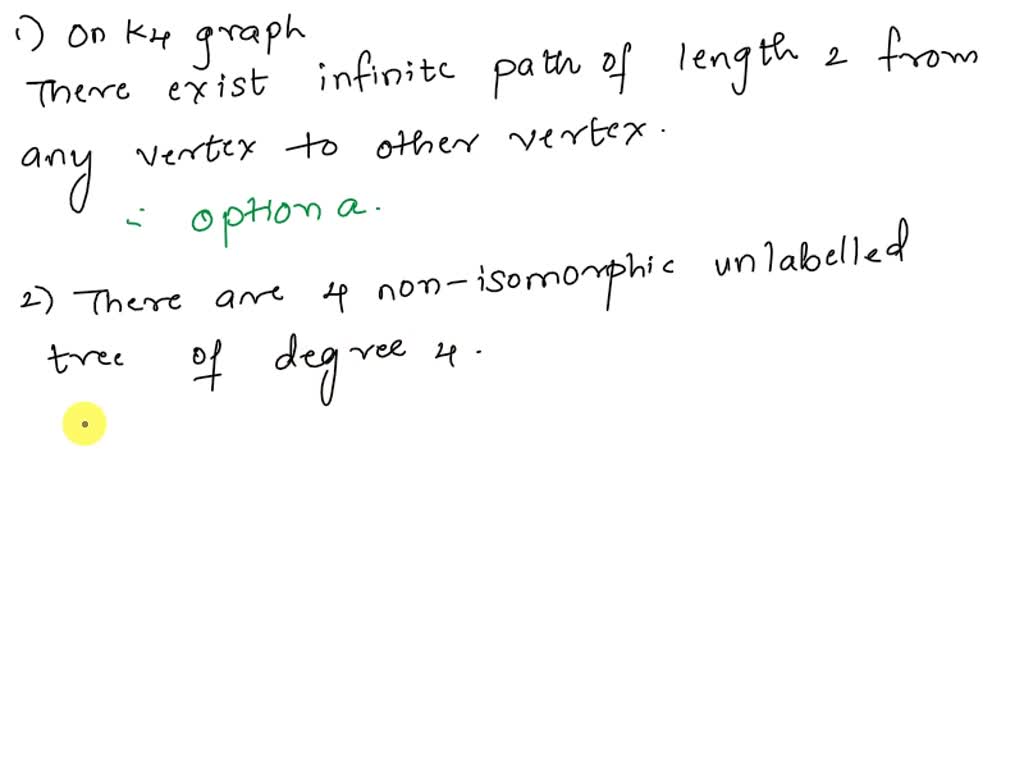 1) On K4 graph
There exist infinite path of length 2 from
any vertex to other vertex.
∴ option a.
2) There are 4 non-isomorphic unlabelled
tree of degree 4.